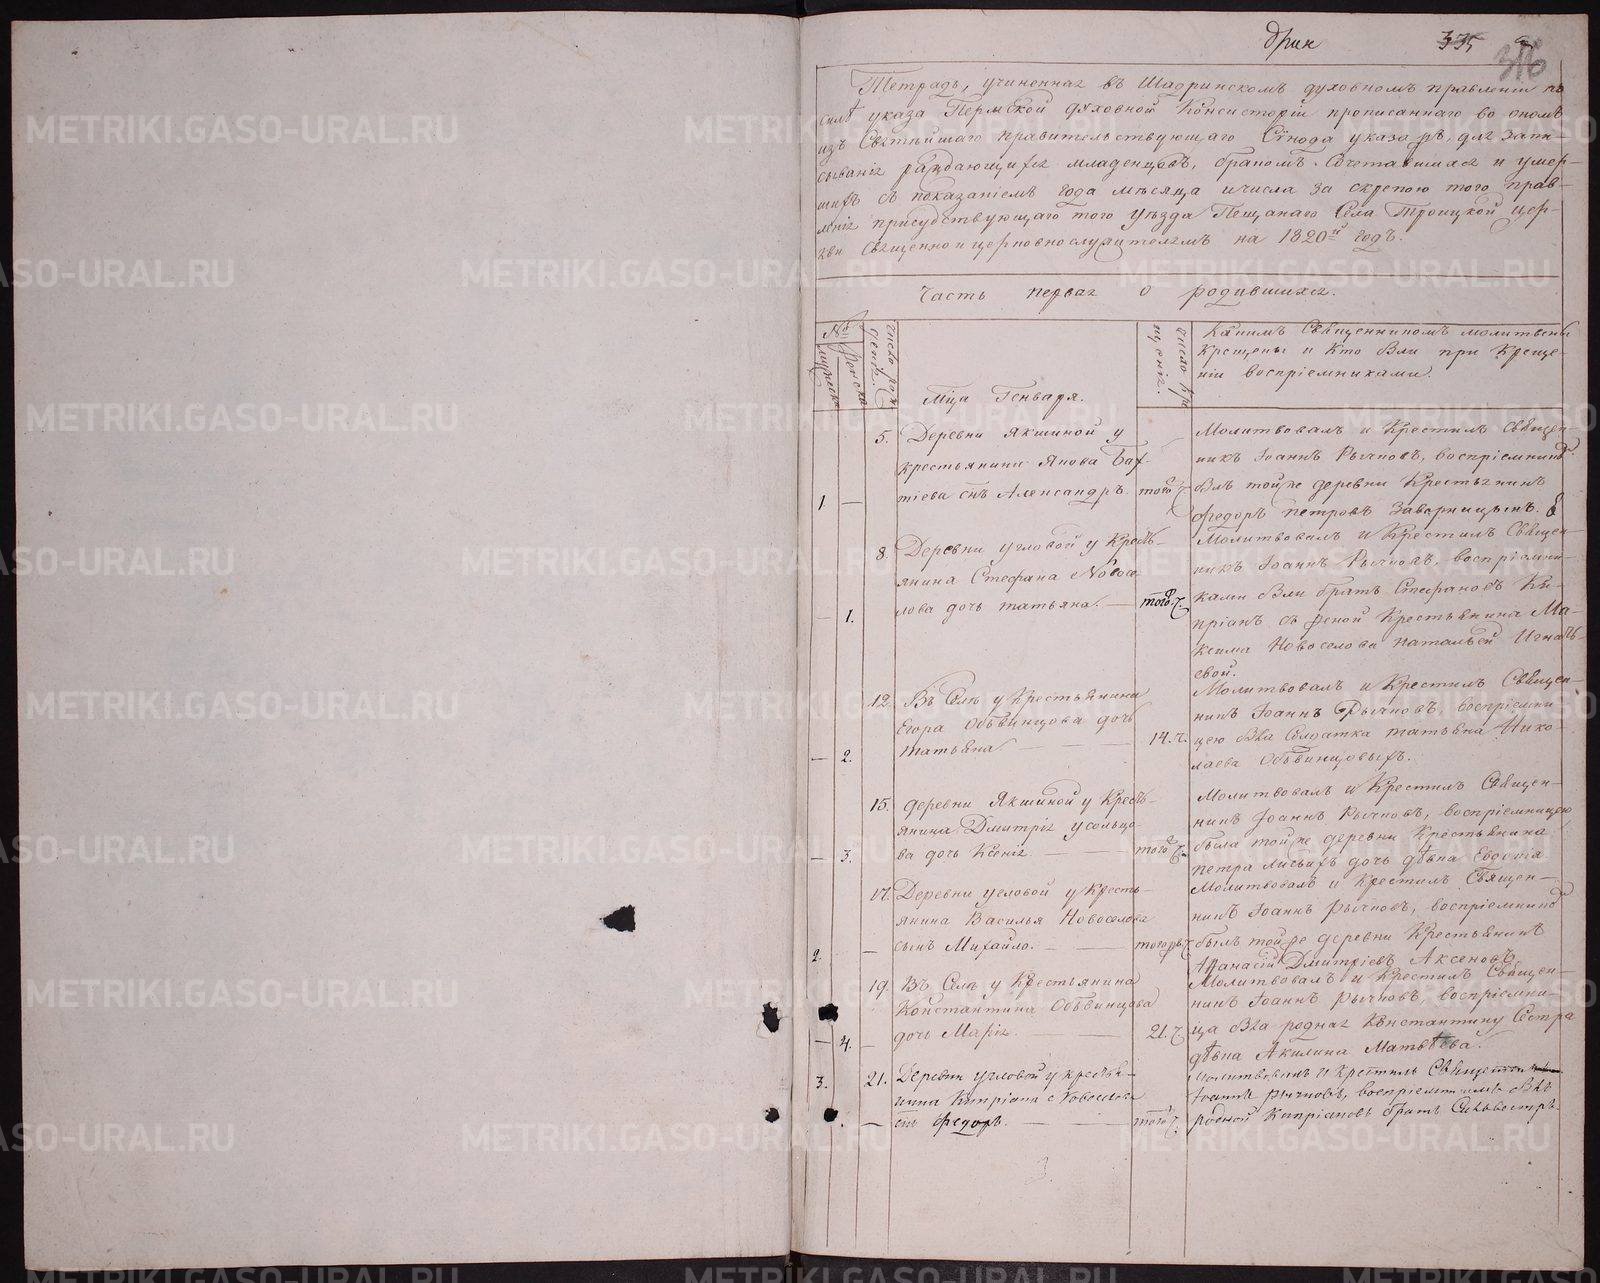 335
316
Тетрадь, учиненная въ Шадринскомъ духовномъ правленіи по
силѣ указа Пермской духовной Консисторіи прописаннаго во ономъ
изъ Святѣйшаго правительствующаго Сѵнода указа для запи-
сыванія раждающихся младенцовъ, бракомъ сочетавшихся и умер-
шихъ съ показаніемъ года мѣсяца и числа за скрепою того прав-
ленія присудствующаго того уѣзда Пещанаго Села Троицкой цер-
кви священно и церковнослужителямъ на 1820й годъ.
Часть первая о родившихся.
№
мужеска
женска
число рож
денія.
Мца Генваря.
число кре
щенія.
Какимъ Священникомъ молитвены
Крещены и Кто Были при Креще-
ніи воспріемниками.
5. Деревни Якшиной у
крестьянина Якова Бах-
тіева снъ Александръ. того ч.
1. —
Молитвовалъ и Крестилъ Священ-
никъ Іоаннъ Рычковъ, воспріемникъ
Былъ той же деревни Крестьянинъ
Федоръ петровъ Заварницынъ.
8. Деревни угловой у Кресть-
янина Стефана Новосе-
лова дочь татьяна. — того ч.
— 1.
Молитвовалъ и Крестилъ Священ-
никъ Іоаннъ Рычковъ, воспріемни-
ками Были братъ Стефановъ Ки-
пріанъ съ женой Крестьянина Ма-
ксима Новоселова натальей Игнать-
евой.
12. Въ Селѣ у Крестьянина
Егора Обвинцова дочь
татьяна — — — 14. ч.
— 2.
Молитвовалъ и Крестилъ Священ-
никъ Іоаннъ Рычковъ, воспріемни
цею Была Солдатка татьяна Нико-
лаева Обвинцовыхъ.
15. деревни Якшиной у Кресть-
янина Дмитрія усольцо-
ва дочь Ксенія — — того ч.
— 3.
Молитвовалъ и Крестилъ Священ-
никъ Іоаннъ Рычковъ, воспріемницею
была той же деревни Крестьянина
петра лисьихъ дочь дѣвка Евдокія
17. Деревни угловой у Кресть-
янина Василья Новоселова
сынъ Михайло. — — того ч.
2. —
Молитвовалъ и Крестилъ Священ-
никъ Іоаннъ Рычковъ, воспріемникъ
былъ той же деревни Крестьянинъ
Афанасій Дмитріевъ Аксеновъ.
19. Въ Селѣ у Крестьянина
Константина Обвинцова
дочь Марія — — 21. ч.
— 4. —
Молитвовалъ и Крестилъ Священ-
никъ Іоаннъ Рычковъ, воспріемни-
ца Была родная Константину Сестра
дѣвка Акилина Матвѣева.
3. 21. Деревни угловой у крестья-
нина Кипріана Новоселова
— снъ Федоръ. — — того ч.
Молитвовалъ и Крестилъ Священникъ
Іоаннъ Рычковъ, воспріемникъ Былъ
родной Кипріановъ братъ Сильвестръ.